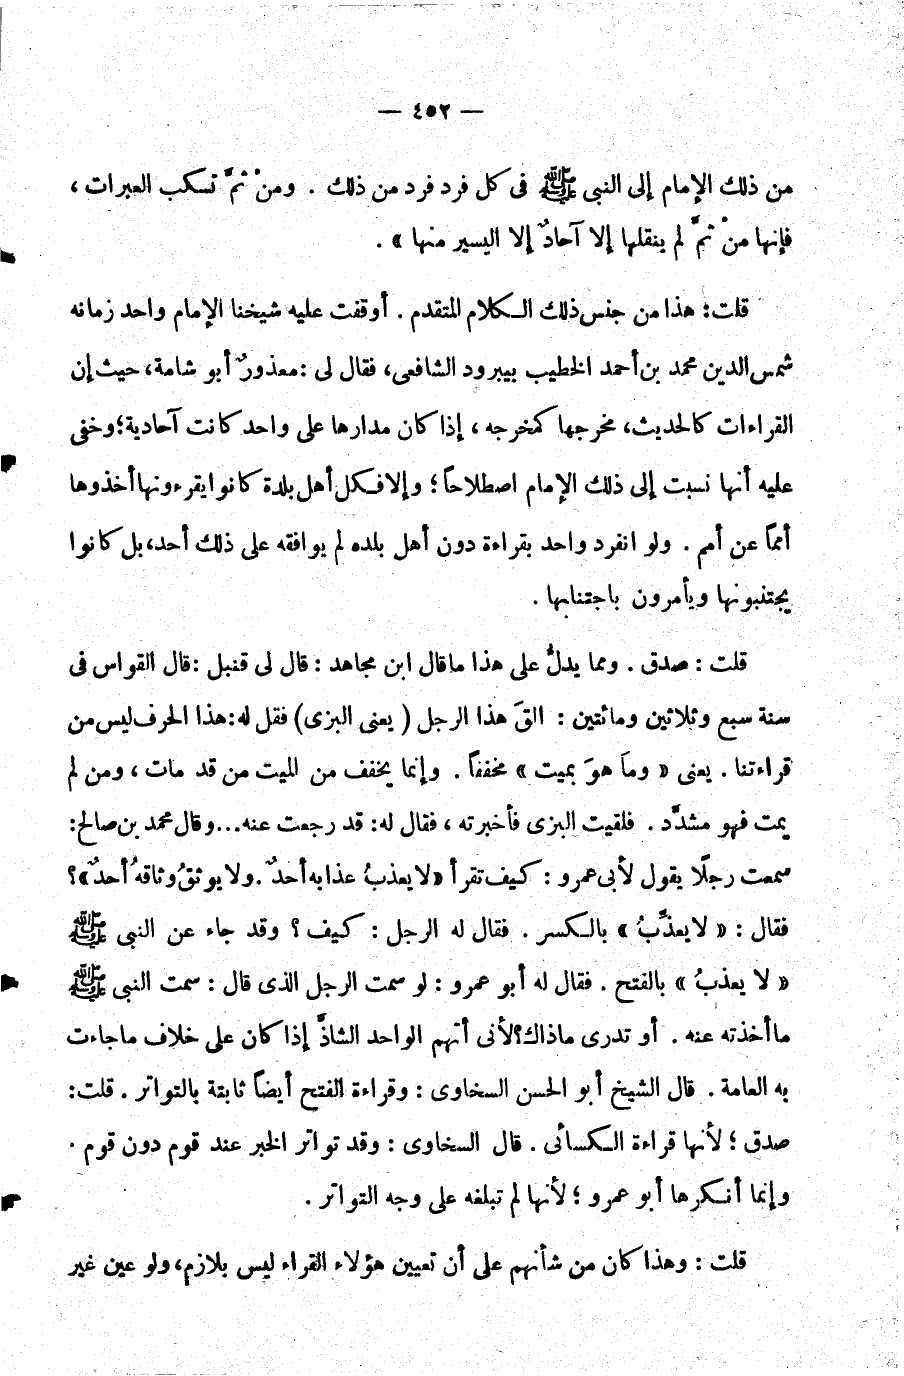 — ٤٥٢ —
من ذلك الإمام إلى النبى ﷺ فى كل فرد فرد من ذلك . ومنْ ثَمَّ تسكب العبرات ،
فإنها منْ ثَمَّ لم ينقلها إلا آحادٌ إلا اليسير منها » .
قلت : هذا من جنس ذلك الكلام المتقدم . أوقفت عليه شيخنا الإمام واحد زمانه
شمس الدين محمد بن أحمد الخطيب بيبرود الشافعى، فقال لى : معذورٌ أبو شامة، حيث إن
القراءات كالحديث، مخرجها كمخرجه ، إذا كان مدارها على واحد كانت آحادية؛ وخفى
عليه أنها نسبت إلى ذلك الإمام اصطلاحاً ؛ وإلا فكل أهل بلدة كانوا يقرءونها أخذوها
أمماً عن أمم . ولو انفرد واحد بقراءة دون أهل بلده لم يوافقه على ذلك أحد، بل كانوا
يجتنبونها ويأمرون باجتنابها .
قلت : صدق . ومما يدلُّ على هذا ما قال ابن مجاهد : قال لى قنبل : قال القواس فى
سنة سبع وثلاثين ومائتين : القَ هذا الرجل ( يعنى البزى) فقل له: هذا الحرف ليس من
قراءتنا . يعنى « وماَ هوَ بميت » مخففاً . وإنما يخفف من الميت من قد مات ، ومن لم
يمت فهو مشدَّد . فلقيت البزى فأخبرته ، فقال له: قد رجعت عنه... وقال محمد بن صالح:
سمعت رجلًا يقول لأبى عمرو : كيف تقرأ «لا يعذبُ عذابه أحدٌ . ولا يوثقُ وثاقهُ أحدٌ»؟
فقال : « لا يعذِّبُ » بالكسر . فقال له الرجل : كيف ؟ وقد جاء عن النبى ﷺ
« لا يعذبُ » بالفتح . فقال له أبو عمرو : لو سمت الرجل الذى قال : سمت النبى ﷺ
ما أخذته عنه . أو تدرى ماذاك؟ لأنى أتهم الواحد الشاذَّ إذا كان على خلاف ما جاءت
به العامة . قال الشيخ أبو الحسن السخاوى : وقراءة الفتح أيضاً ثابتة بالتواتر . قلت:
صدق ؛ لأنها قراءة الكسائى . قال السخاوى : وقد تواتر الخبر عند قوم دون قوم ·
وإنما أنكرها أبو عمرو ؛ لأنها لم تبلغه على وجه التواتر .
قلت : وهذا كان من شأنهم على أن تعيين هؤلاء القراء ليس بلازم، ولو عين غير